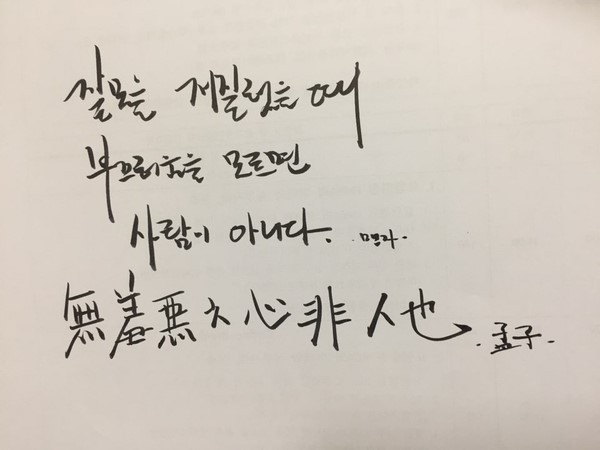 잘못을 저질렀을 때
부끄러움을 모르면
사람이 아니다. 맹자.
無羞惡之心非人也. 孟子.